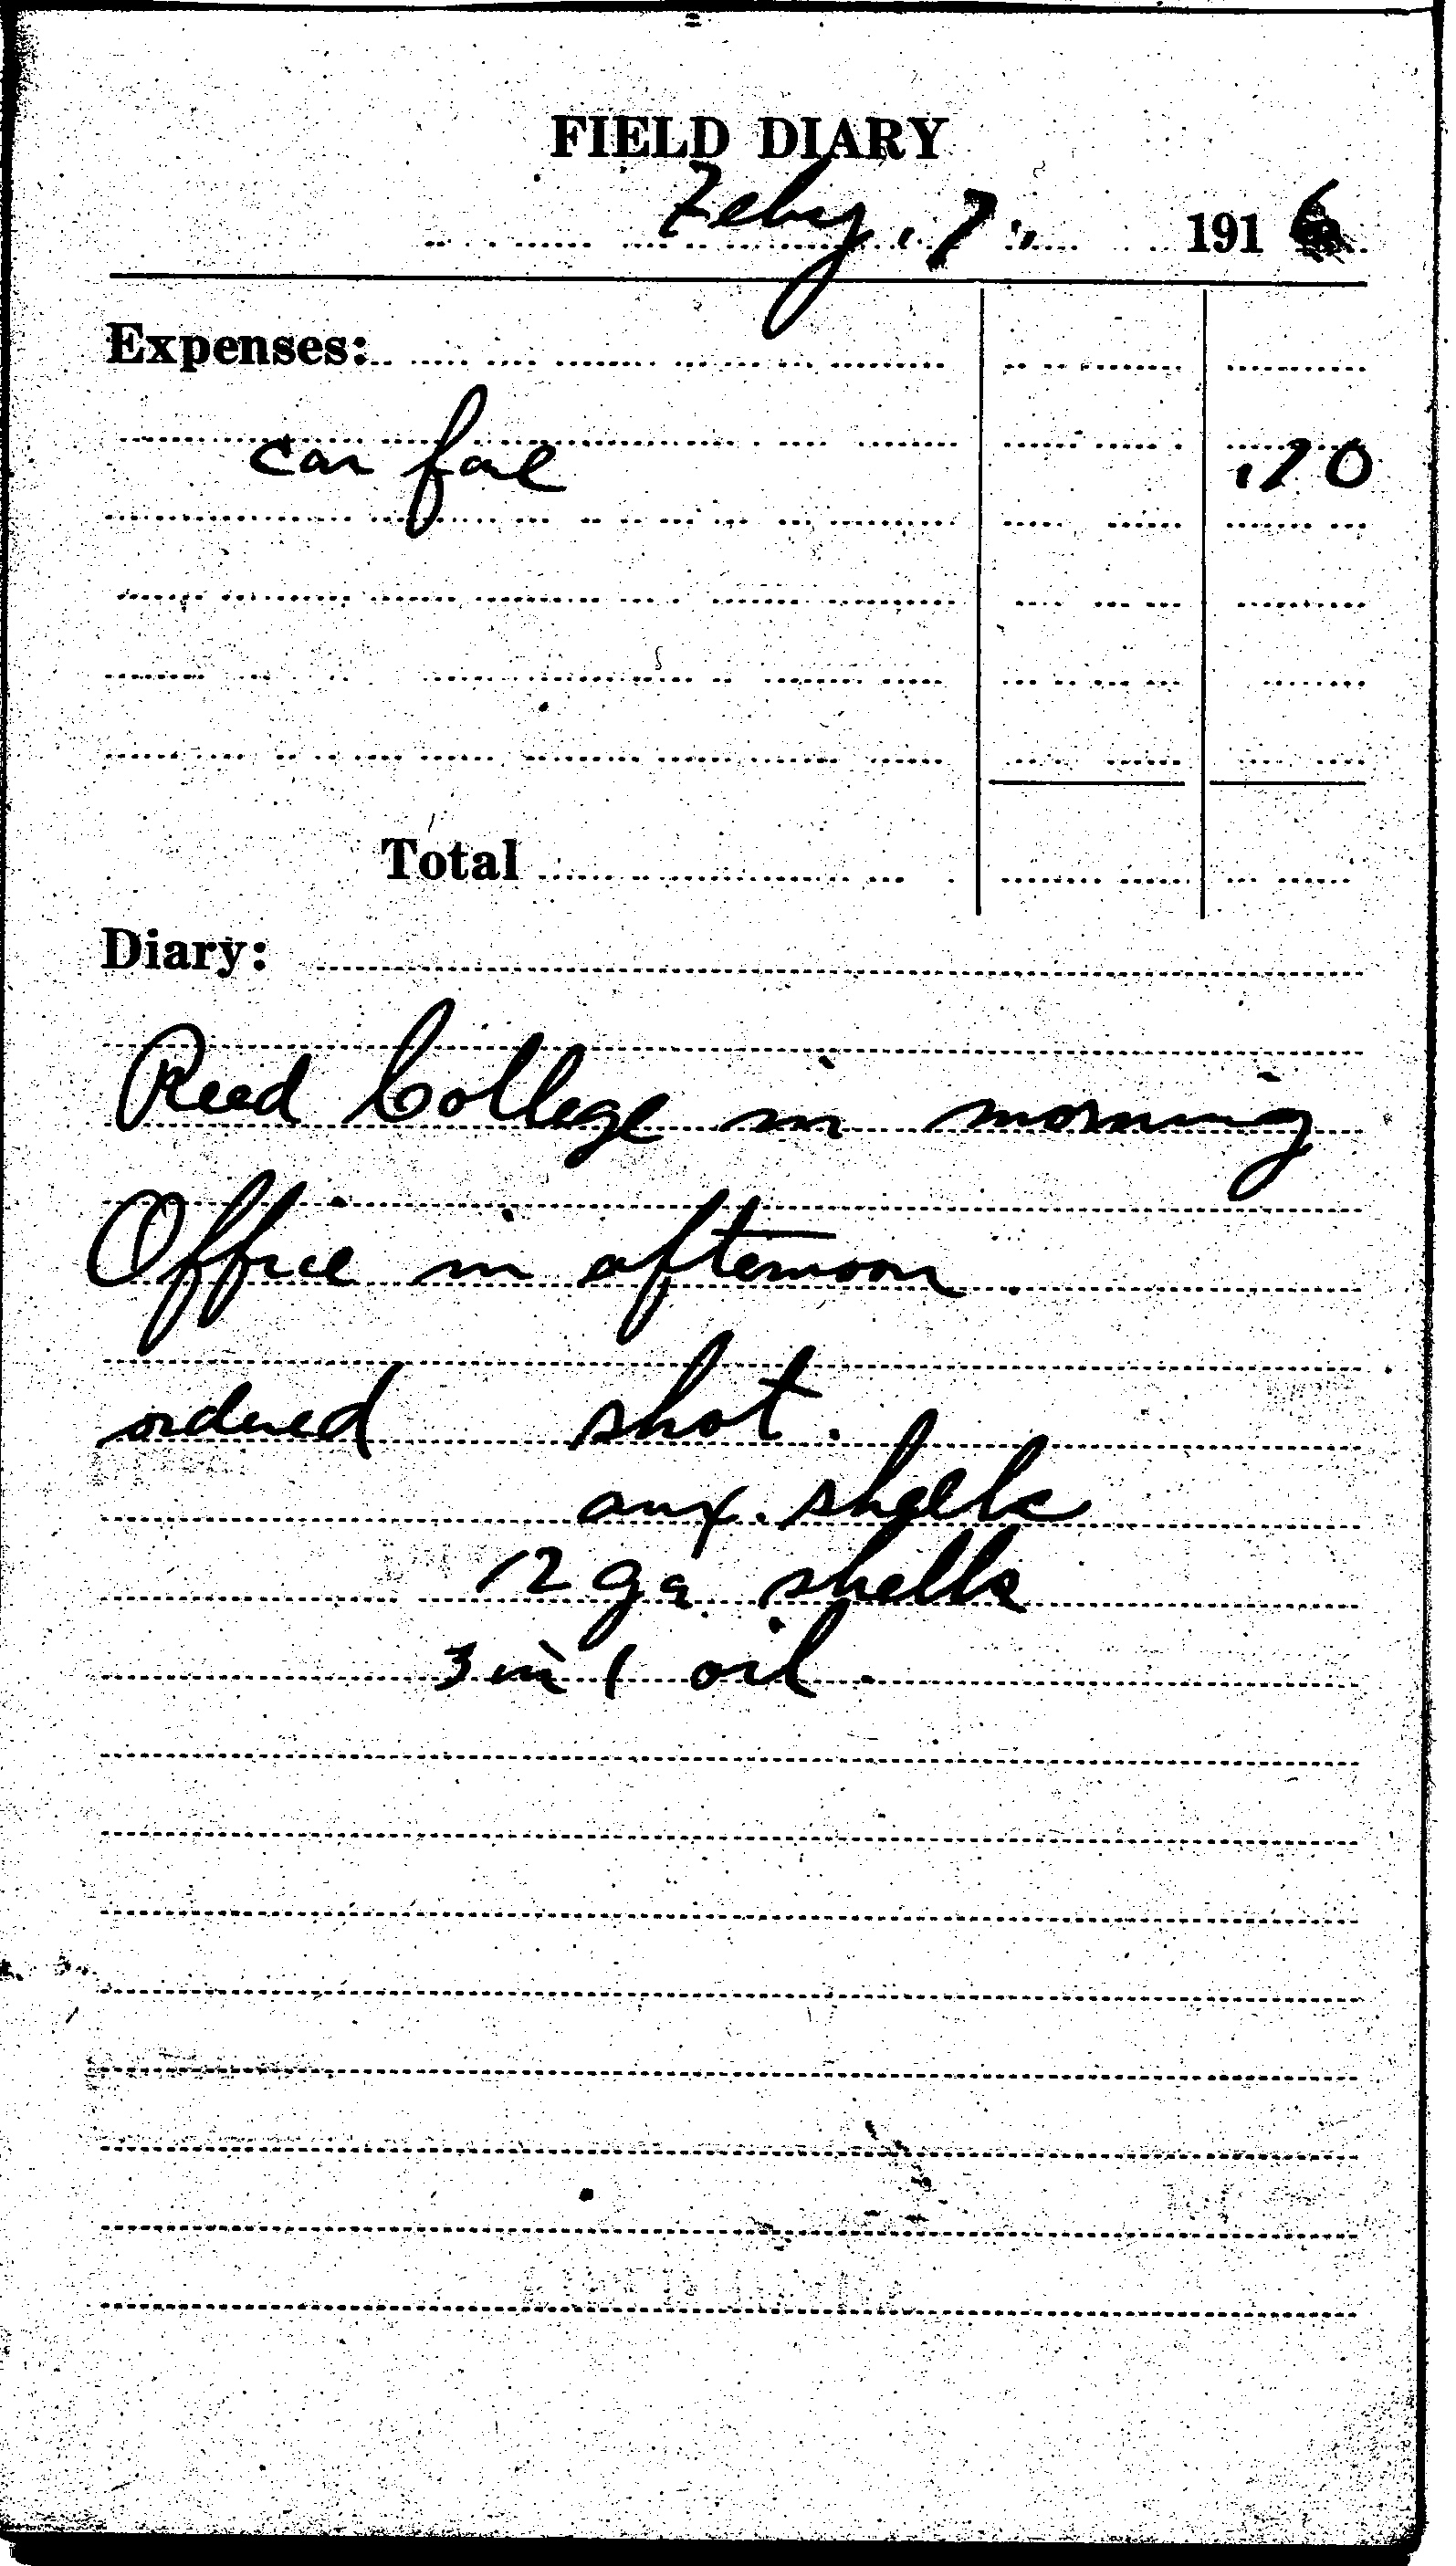 FIELD DIARY
Feby. 7, 1916
Expenses:
car fare .10
Total
Diary:
Reed College in morning
Office in afternoon.
ordered shot.
aux. shells
12 ga. shells
3 in 1 oil.